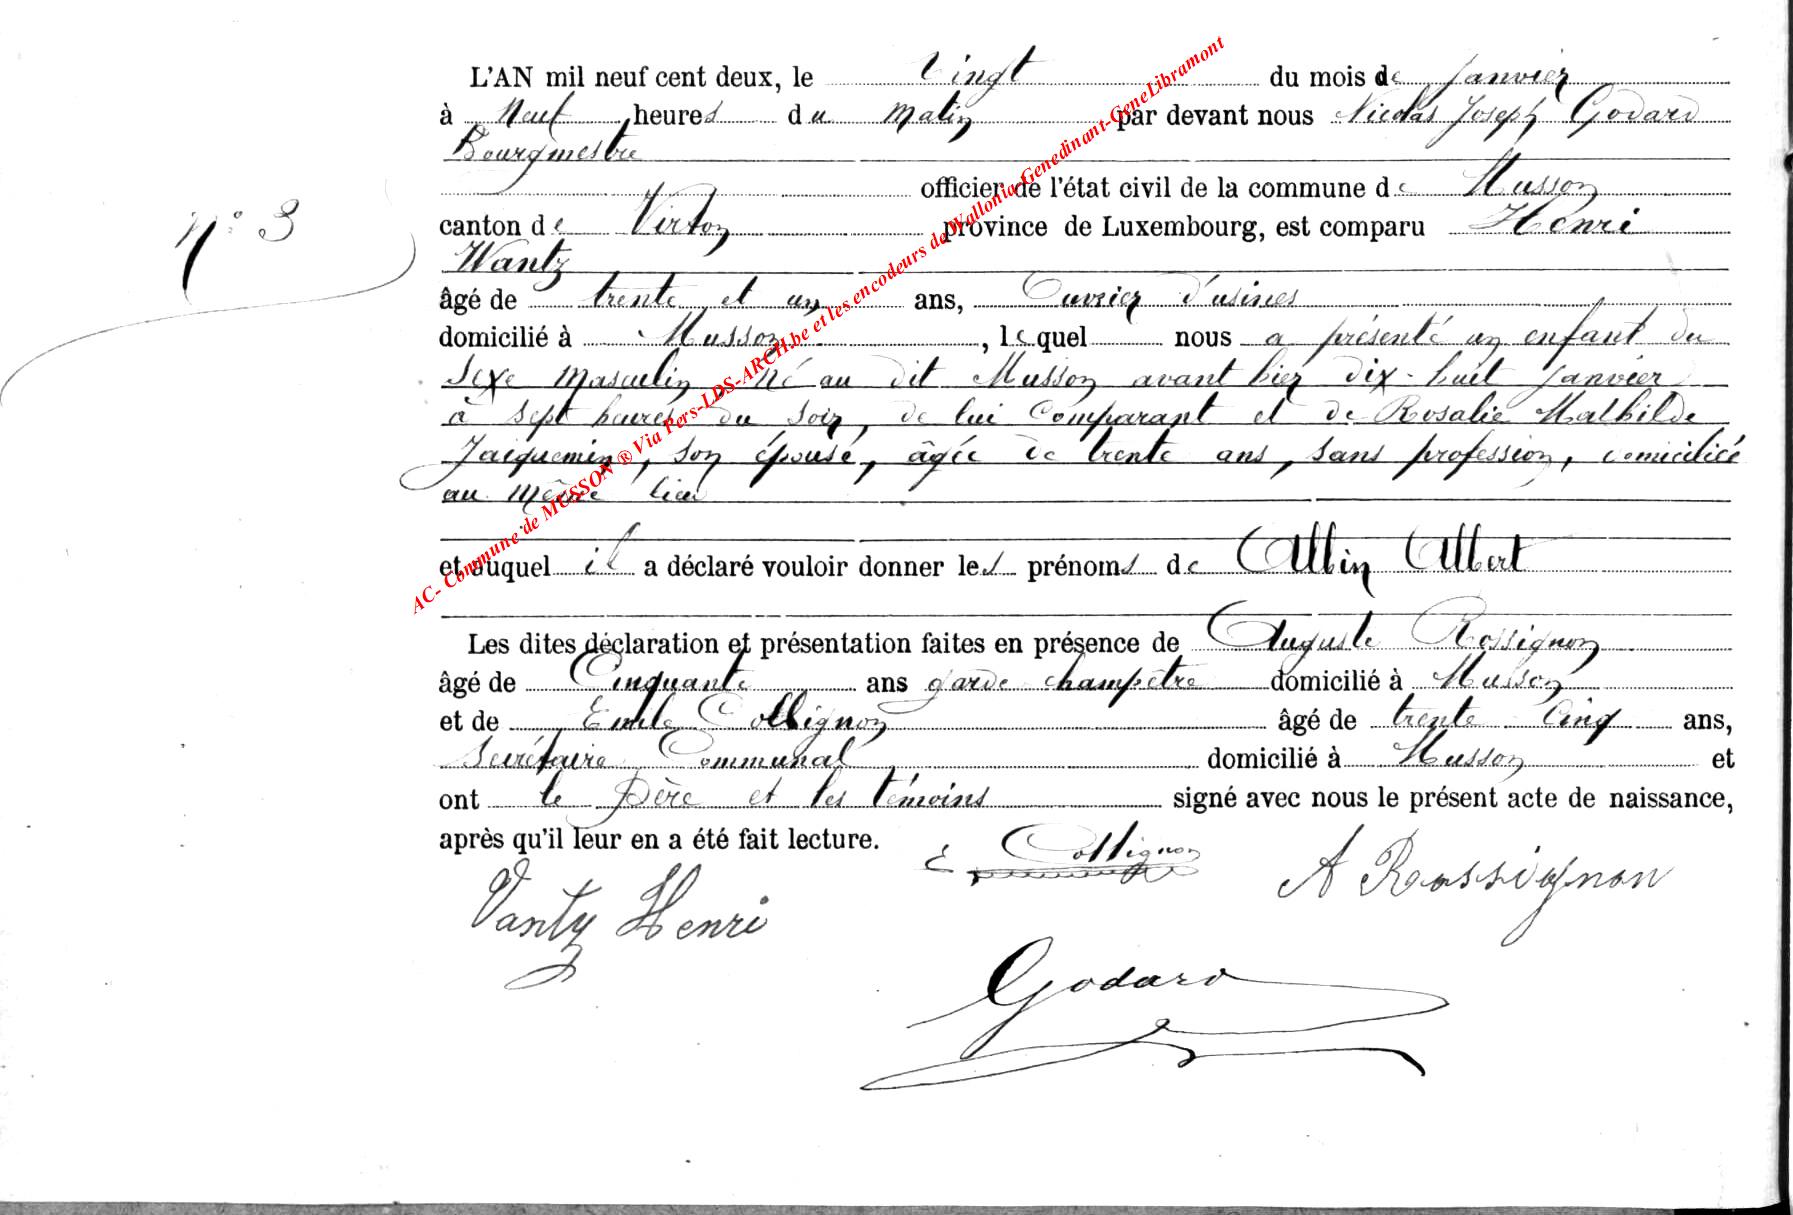 L'AN mil neuf cent deux, le vingt du mois de janvier
à Neuf heures du matin par devant nous Nicolas Joseph Godard
Bourgmestre
officier de l'état civil de la commune de Musson
N° 3
canton de Virton province de Luxembourg, est comparu Henri
Wantz
âgé de trente et un ans, Ouvrier d'usines
domicilié à Musson, lequel nous a présenté un enfant du
Sexe Masculin, Né au dit Musson avant hier dix-huit janvier
à sept heures du soir, de lui Comparant et de Rosalie Mathilde
Jacquemin, son épouse, âgée de trente ans, sans profession, domiciliée
au même lieu
et auquel il a déclaré vouloir donner les prénoms de Albin Albert
Les dites déclaration et présentation faites en présence de Auguste Rossignon
âgé de Cinquante ans garde champêtre domicilié à Musson
et de Emile Collignon âgé de trente Cinq ans,
Secrétaire Communal domicilié à Musson et
ont le Père et les témoins signé avec nous le présent acte de naissance,
après qu'il leur en a été fait lecture.
E Collignon
A Rossignon
Vantz Henri
Godard
AC- Commune de MUSSON ® Via Pers-LDS-ARCH.be et les encodeurs de Wallonia-Genedinant-GeneLibramont